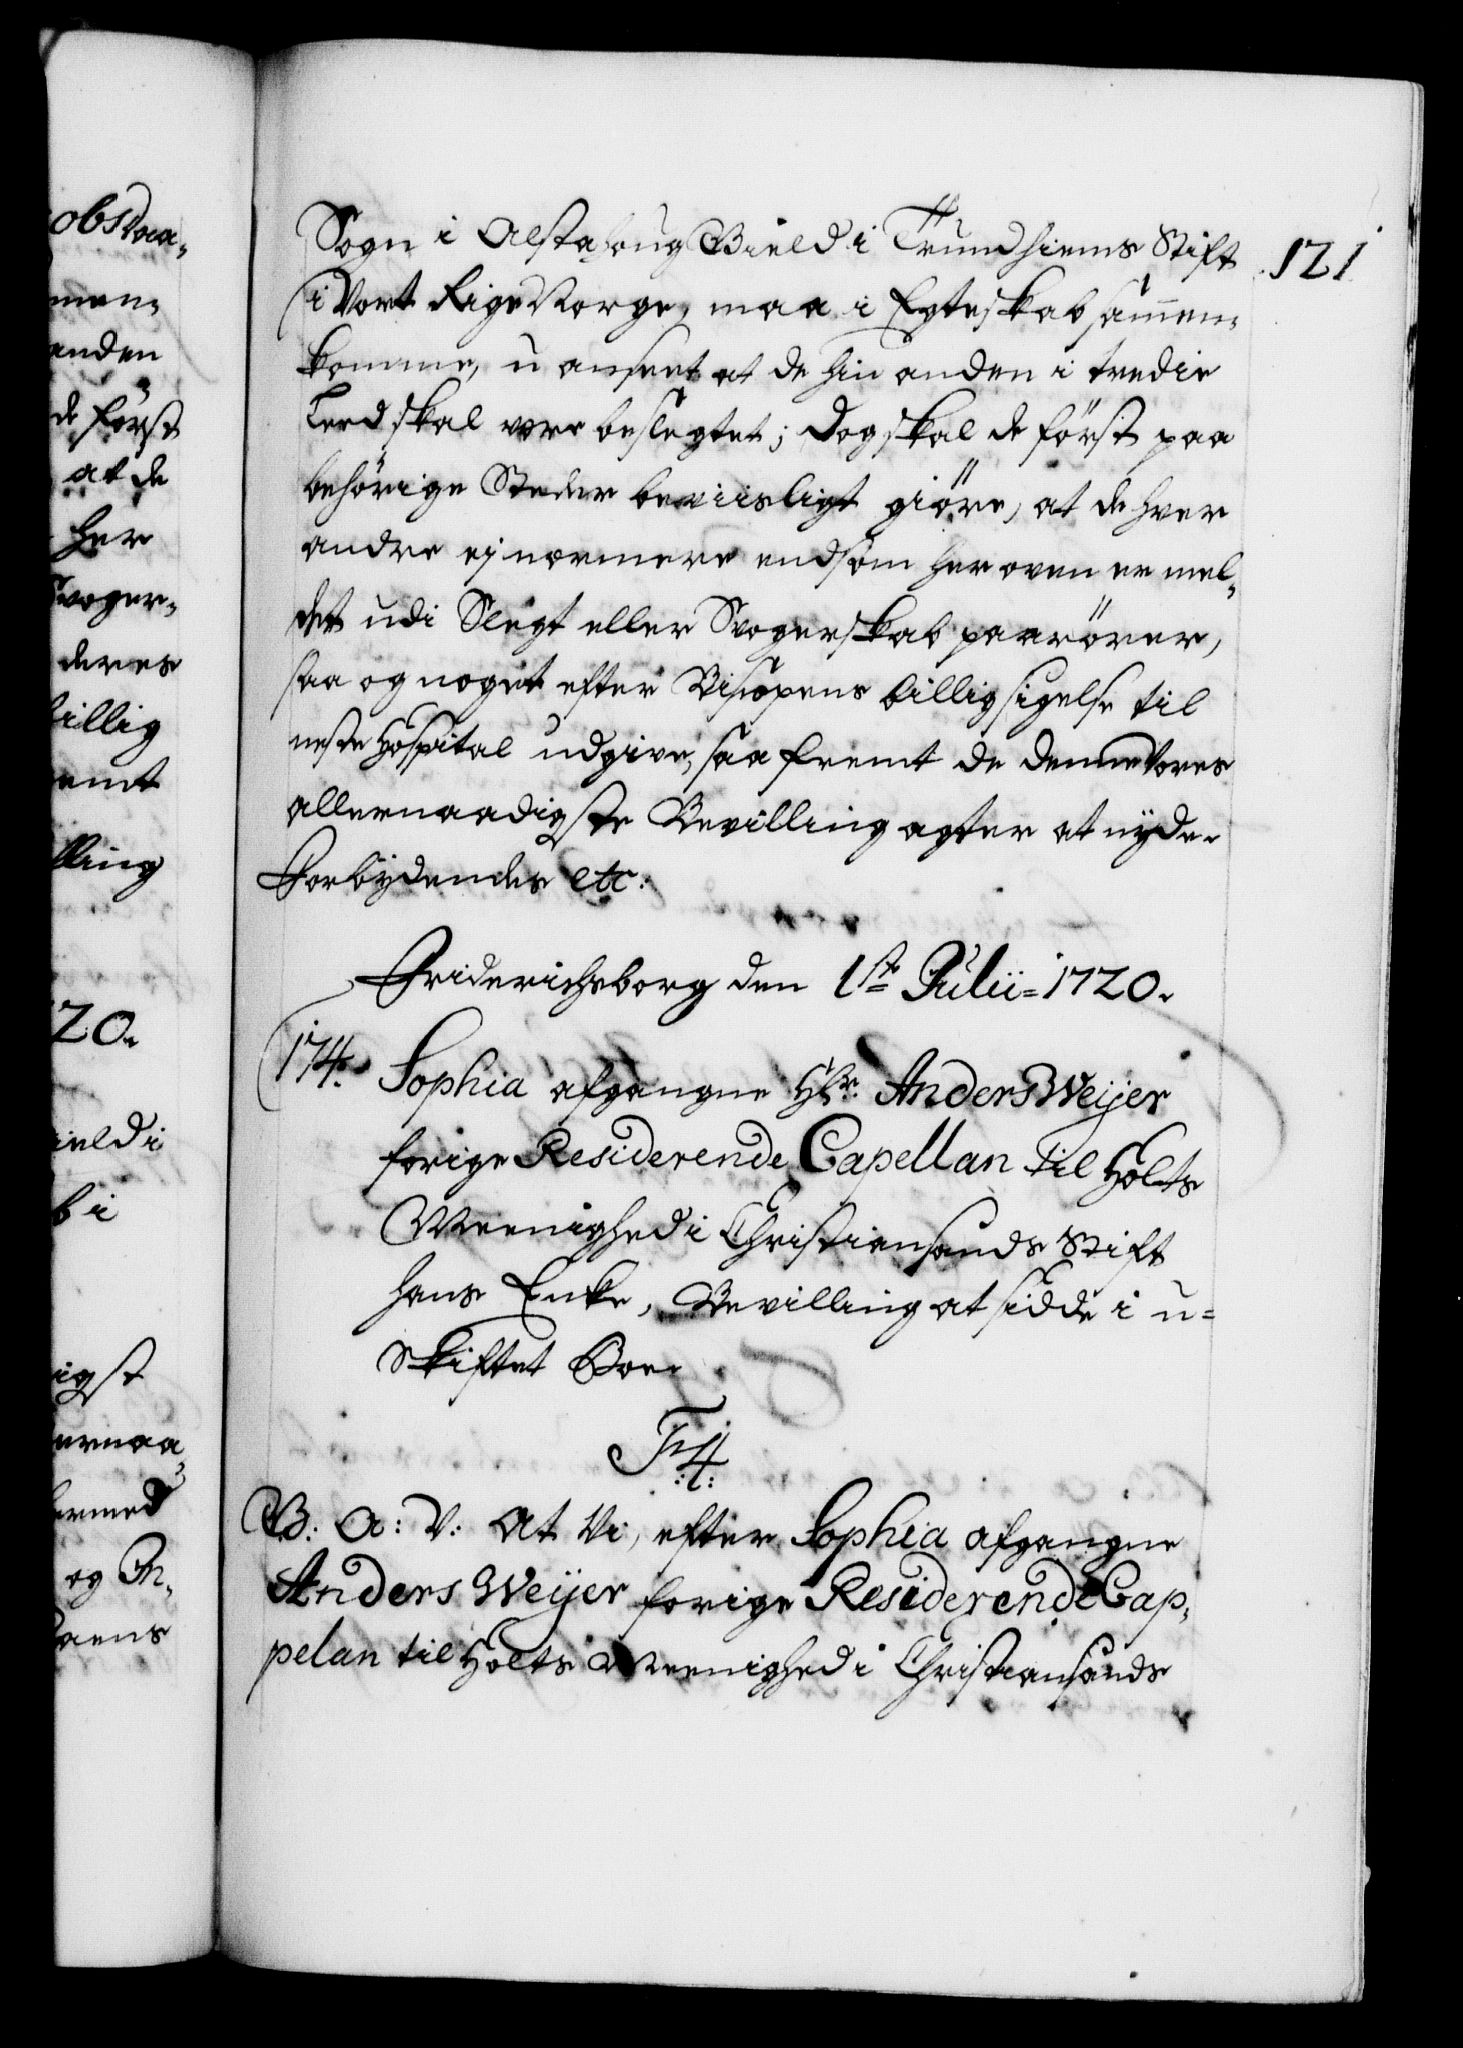 121
Sogn i Alstahoug Gield i Trundhiems Stift
i Vort Rige Norge, maa i Egteskab sammen-
komme, u anseet at de hin anden i tredie
Leed skal vere beslegtet; dog skal de först paa
behörige Steder beviisligt giöre, at de hver
andre ej nærmere end som her oven er mel-
det udi Slegt eller Svogerskab paarörer,
saa og noget efter Bispens billig sigelse til
neste Hospital udgive, saa fremt de denne Vores
allernaadigste Bevilling agter at nyde.
Forbydendes etc:
Friderichsborg den 1ste Julii 1720.
174. Sophia afgangne Hr: Anders Weijer
forige Residerende Capellan til Holts
Meenighed i Christiansands Stift
hans Enke, Bevilling at sidde i u-
skiftet Boe.
F4
G: A: V: At Vi, efter Sophia afgangne
Anders Weijer forige Residerende Cap-
pelan til Holts Meenighed i Christiansands
obstaa-
men-
anden
de först
at de
her
Svoger-
deres
billig
emt
lling
20.
ield i
b i
igst
ernaa-
ermed
og In-